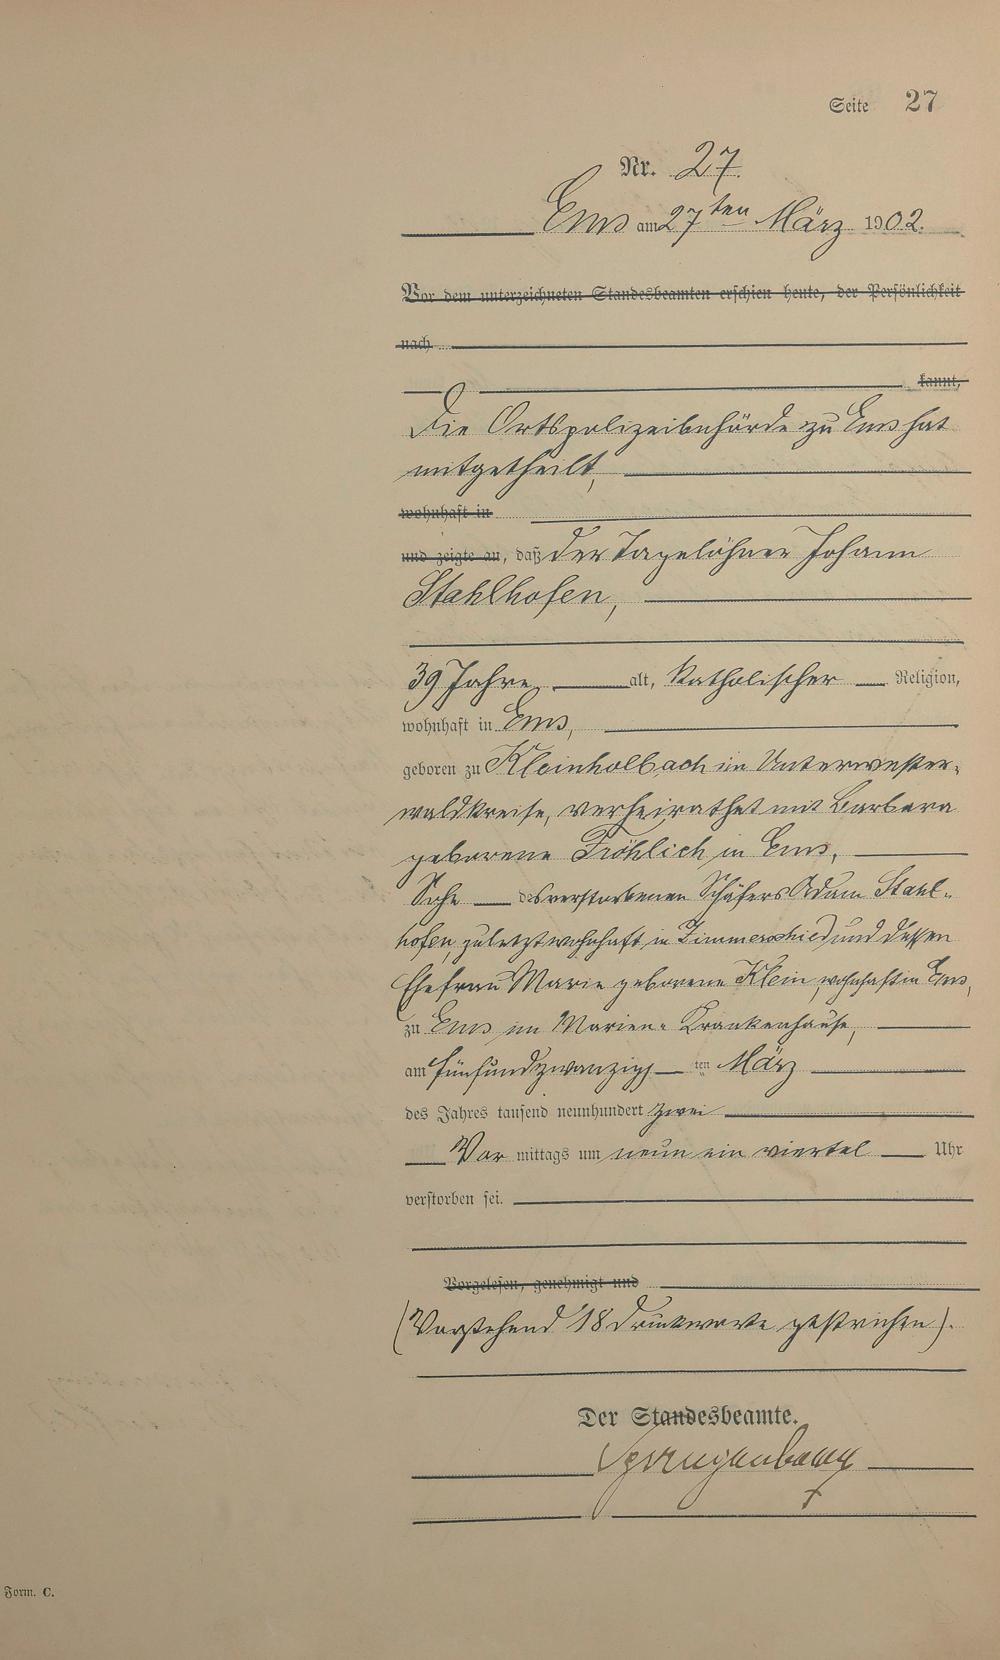 Seite 27
Nr. 27.
Ems am 27ten März 1902.
Vor dem unterzeichneten Standesbeamten erschien heute, der Persönlichkeit
nach
kannt,
Die Ortspolizeibehörde zu Ems hat
mitgetheilt,
wohnhaft in
und zeigte an, daß der Tagelöhner Johann
Stahlhofen,
39 Jahre alt, katholischer Religion,
wohnhaft in Ems,
geboren zu Kleinholbach im Unterwester-
waldkreise, verheirathet mit Barbara
geborene Fröhlich in Ems,
Sohn des verstorbenen Schäfers Adam Stahl-
hofen, zuletzt wohnhaft in Zimmerschied und dessen
Ehefrau Marie geborene Klein, wohnhaft in Ems,
zu Ems im Marien-Krankenhause,
am fünfundzwanzigten März
des Jahres tausend neunhundert zwei
Vor mittags um neun ein viertel Uhr
verstorben sei.
Vorgelesen, genehmigt und
(Vorstehend 18 Druckworte gestrichen).
Der Standesbeamte.
Form. C.